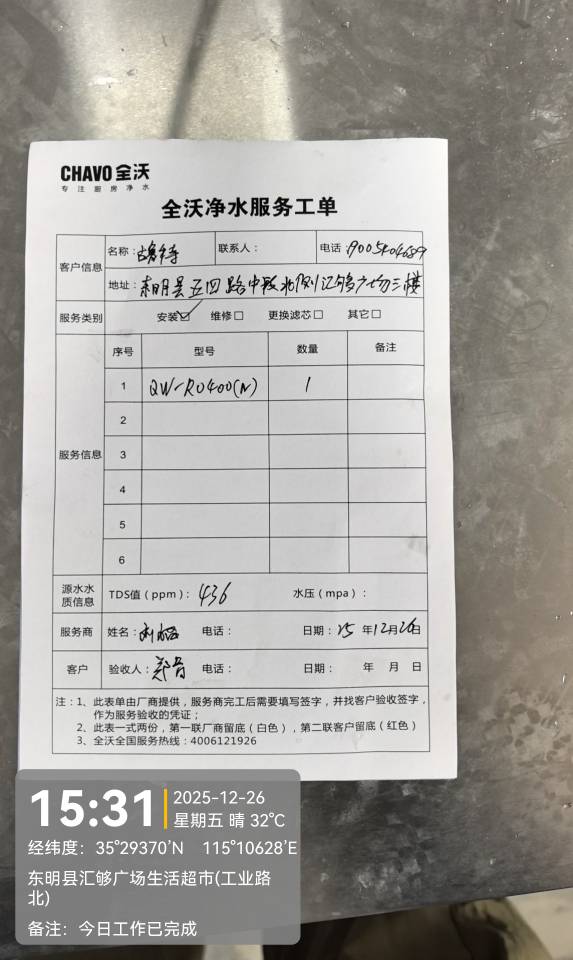 CHAVO 全沃
专注厨房净水
全沃净水服务工单
客户信息
名称： 联系人： 电话：
地址：东明县五四路中段北侧汇够广场三楼
服务类别 安装☑ 维修□ 更换滤芯□ 其它□
服务信息
序号 型号 数量 备注
1 QW-RO400(N) 1
2
3
4
5
6
源水水质信息 TDS值（ppm）：436 水压（mpa）：
服务商 姓名：刘 电话： 日期：25 年12月26日
客户 验收人：郑 电话： 日期： 年 月 日
注：1、此表单由厂商提供，服务商完工后需要填写签字，并找客户验收签字，
作为服务验收的凭证；
2、此表一式两份，第一联厂商留底（白色），第二联客户留底（红色）
3、全沃全国服务热线：4006121926
15:31
2025-12-26
星期五 晴 32℃
经纬度：35°29370'N 115°10628'E
东明县汇够广场生活超市(工业路
北)
备注：今日工作已完成